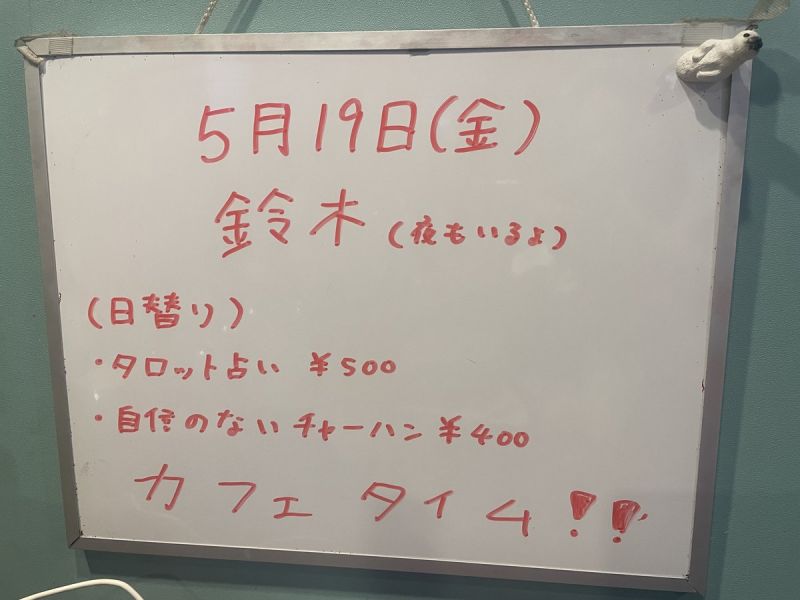 5月19日(金)
鈴木 (夜もいるよ)
(日替り)
・タロット占い ¥500
・自信のない チャーハン ¥400
カフェ タイム!!